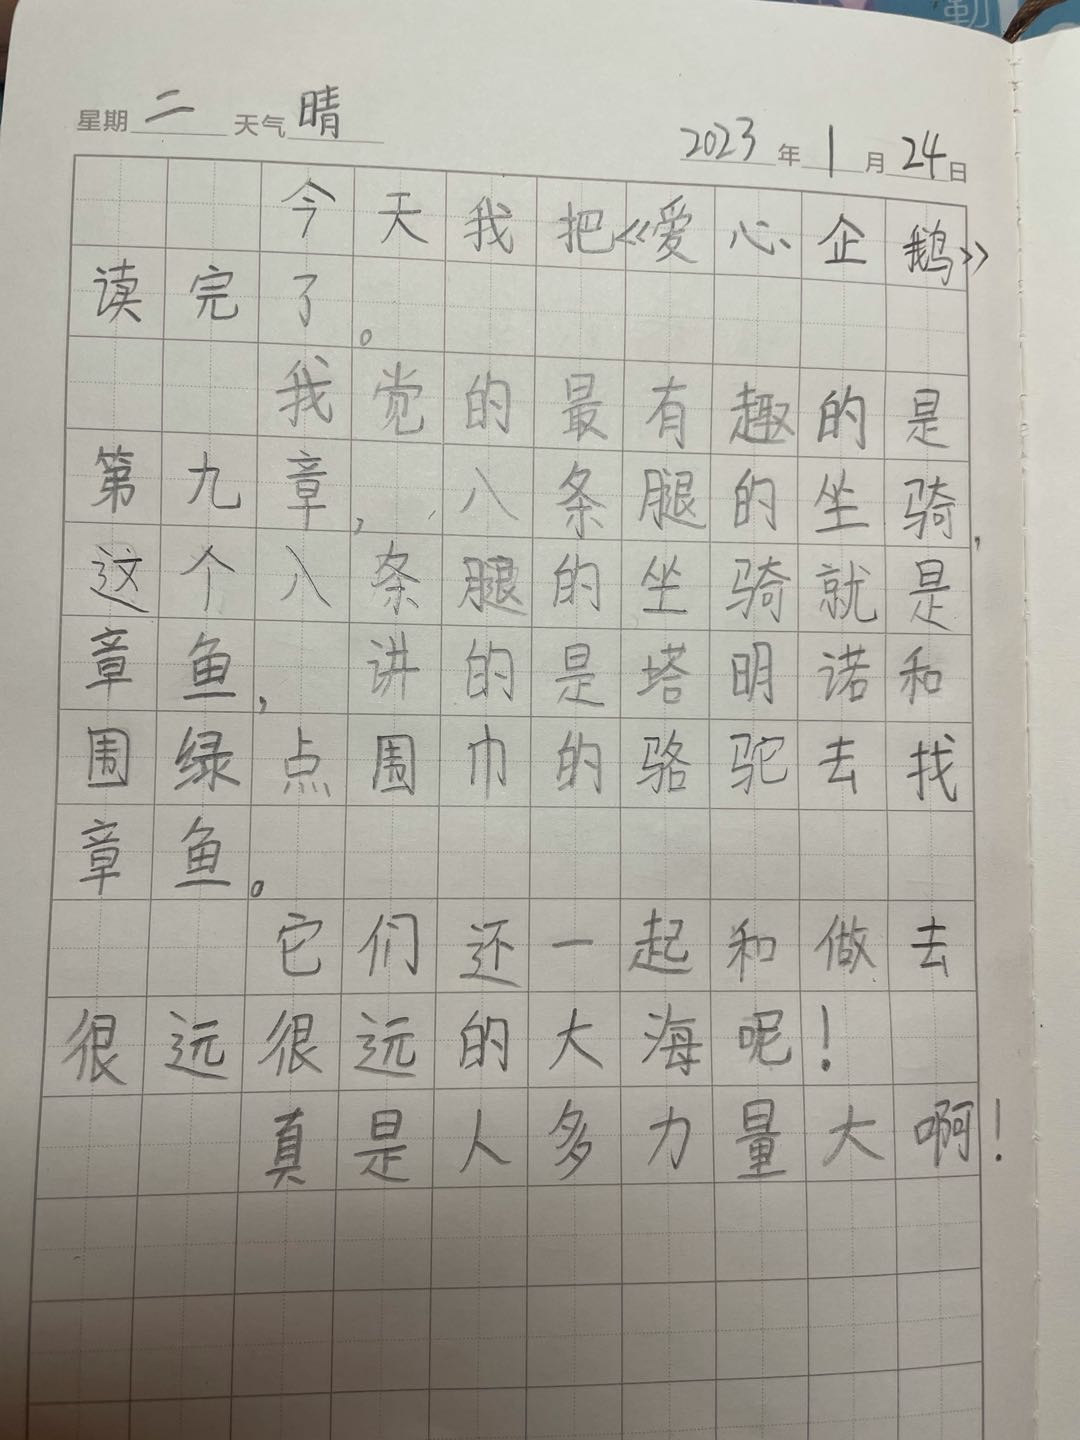 勒
星期 二 天气 晴 2023 年 1 月 24 日
今天我把《爱心企鹅》
读完了。
我觉的最有趣的是
第九章,八条腿的坐骑,
这个八条腿的坐骑就是
章鱼,讲的是塔明诺和
围绿点围巾的骆驼去找
章鱼。
它们还一起和做去
很远很远的大海呢!
真是人多力量大啊!